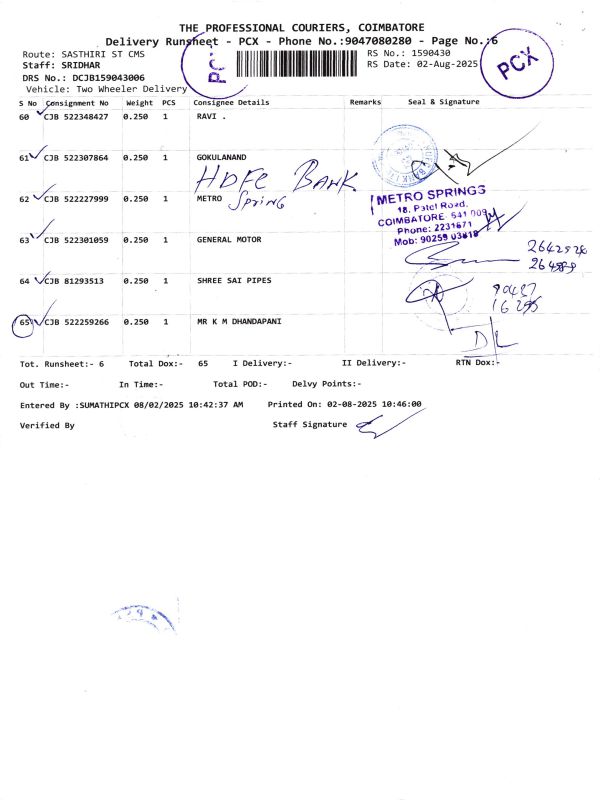 THE PROFESSIONAL COURIERS, COIMBATORE
Delivery Runsheet - PCX - Phone No.:9047080280 - Page No.:6
Route: SASTHIRI ST CMS
RS No.: 1590430
Staff: SRIDHAR
RS Date: 02-Aug-2025
PCX
DRS No.: DCJB159043006
Vehicle: Two Wheeler Delivery
S No Consignment No Weight PCS Consignee Details Remarks Seal & Signature
60 CJB 522348427 0.250 1 RAVI .
61 CJB 522307864 0.250 1 GOKULANAND
HDFC BANK
62 CJB 522227999 0.250 1 METRO Spring
METRO SPRINGS
18, Patel Road,
COIMBATORE- 641 009
Phone: 2231671
Mob: 90259 03818
63 CJB 522301059 0.250 1 GENERAL MOTOR
64 CJB 81293513 0.250 1 SHREE SAI PIPES
65 CJB 522259266 0.250 1 MR K M DHANDAPANI
DL
Tot. Runsheet:- 6 Total Dox:- 65 I Delivery:- II Delivery:- RTN Dox:-
Out Time:- In Time:- Total POD:- Delvy Points:-
Entered By :SUMATHIPCX 08/02/2025 10:42:37 AM Printed On: 02-08-2025 10:46:00
Verified By Staff Signature